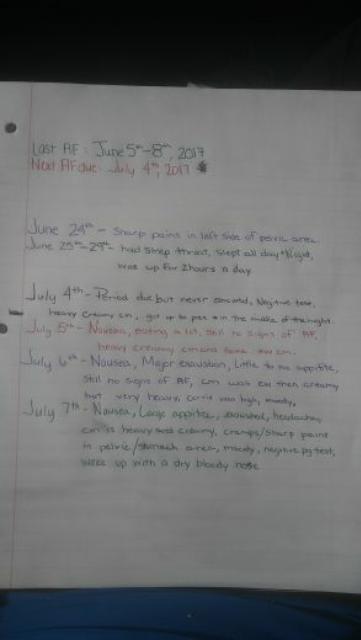 Last AF: June 5th-8th, 2017
Next AF due: July 4th, 2017 *
June 24th - Sharp pains in left side of pelvic area.
June 25th-29th - had strep throat, slept all day + Night,
was up for 2 hours a day
July 4th - Period due but never showed, Negitive test,
heavy creamy cm, got up to pee in the middle of the night.
July 5th - Nausea, eating a lot, still no signs of AF,
heavy creamy cm and some ew cm.
July 6th - Nausea, Major exaustion, Little to no appitite,
still no signs of AF, cm was ew then creamy
but very heavy, cervix was high, moody,
July 7th - Nausea, Large appitite, exausted, headaches,
cm is heavy and creamy, cramps/sharp pains
in pelvic/stomach area, moody, negitive pg test,
woke up with a dry bloody nose